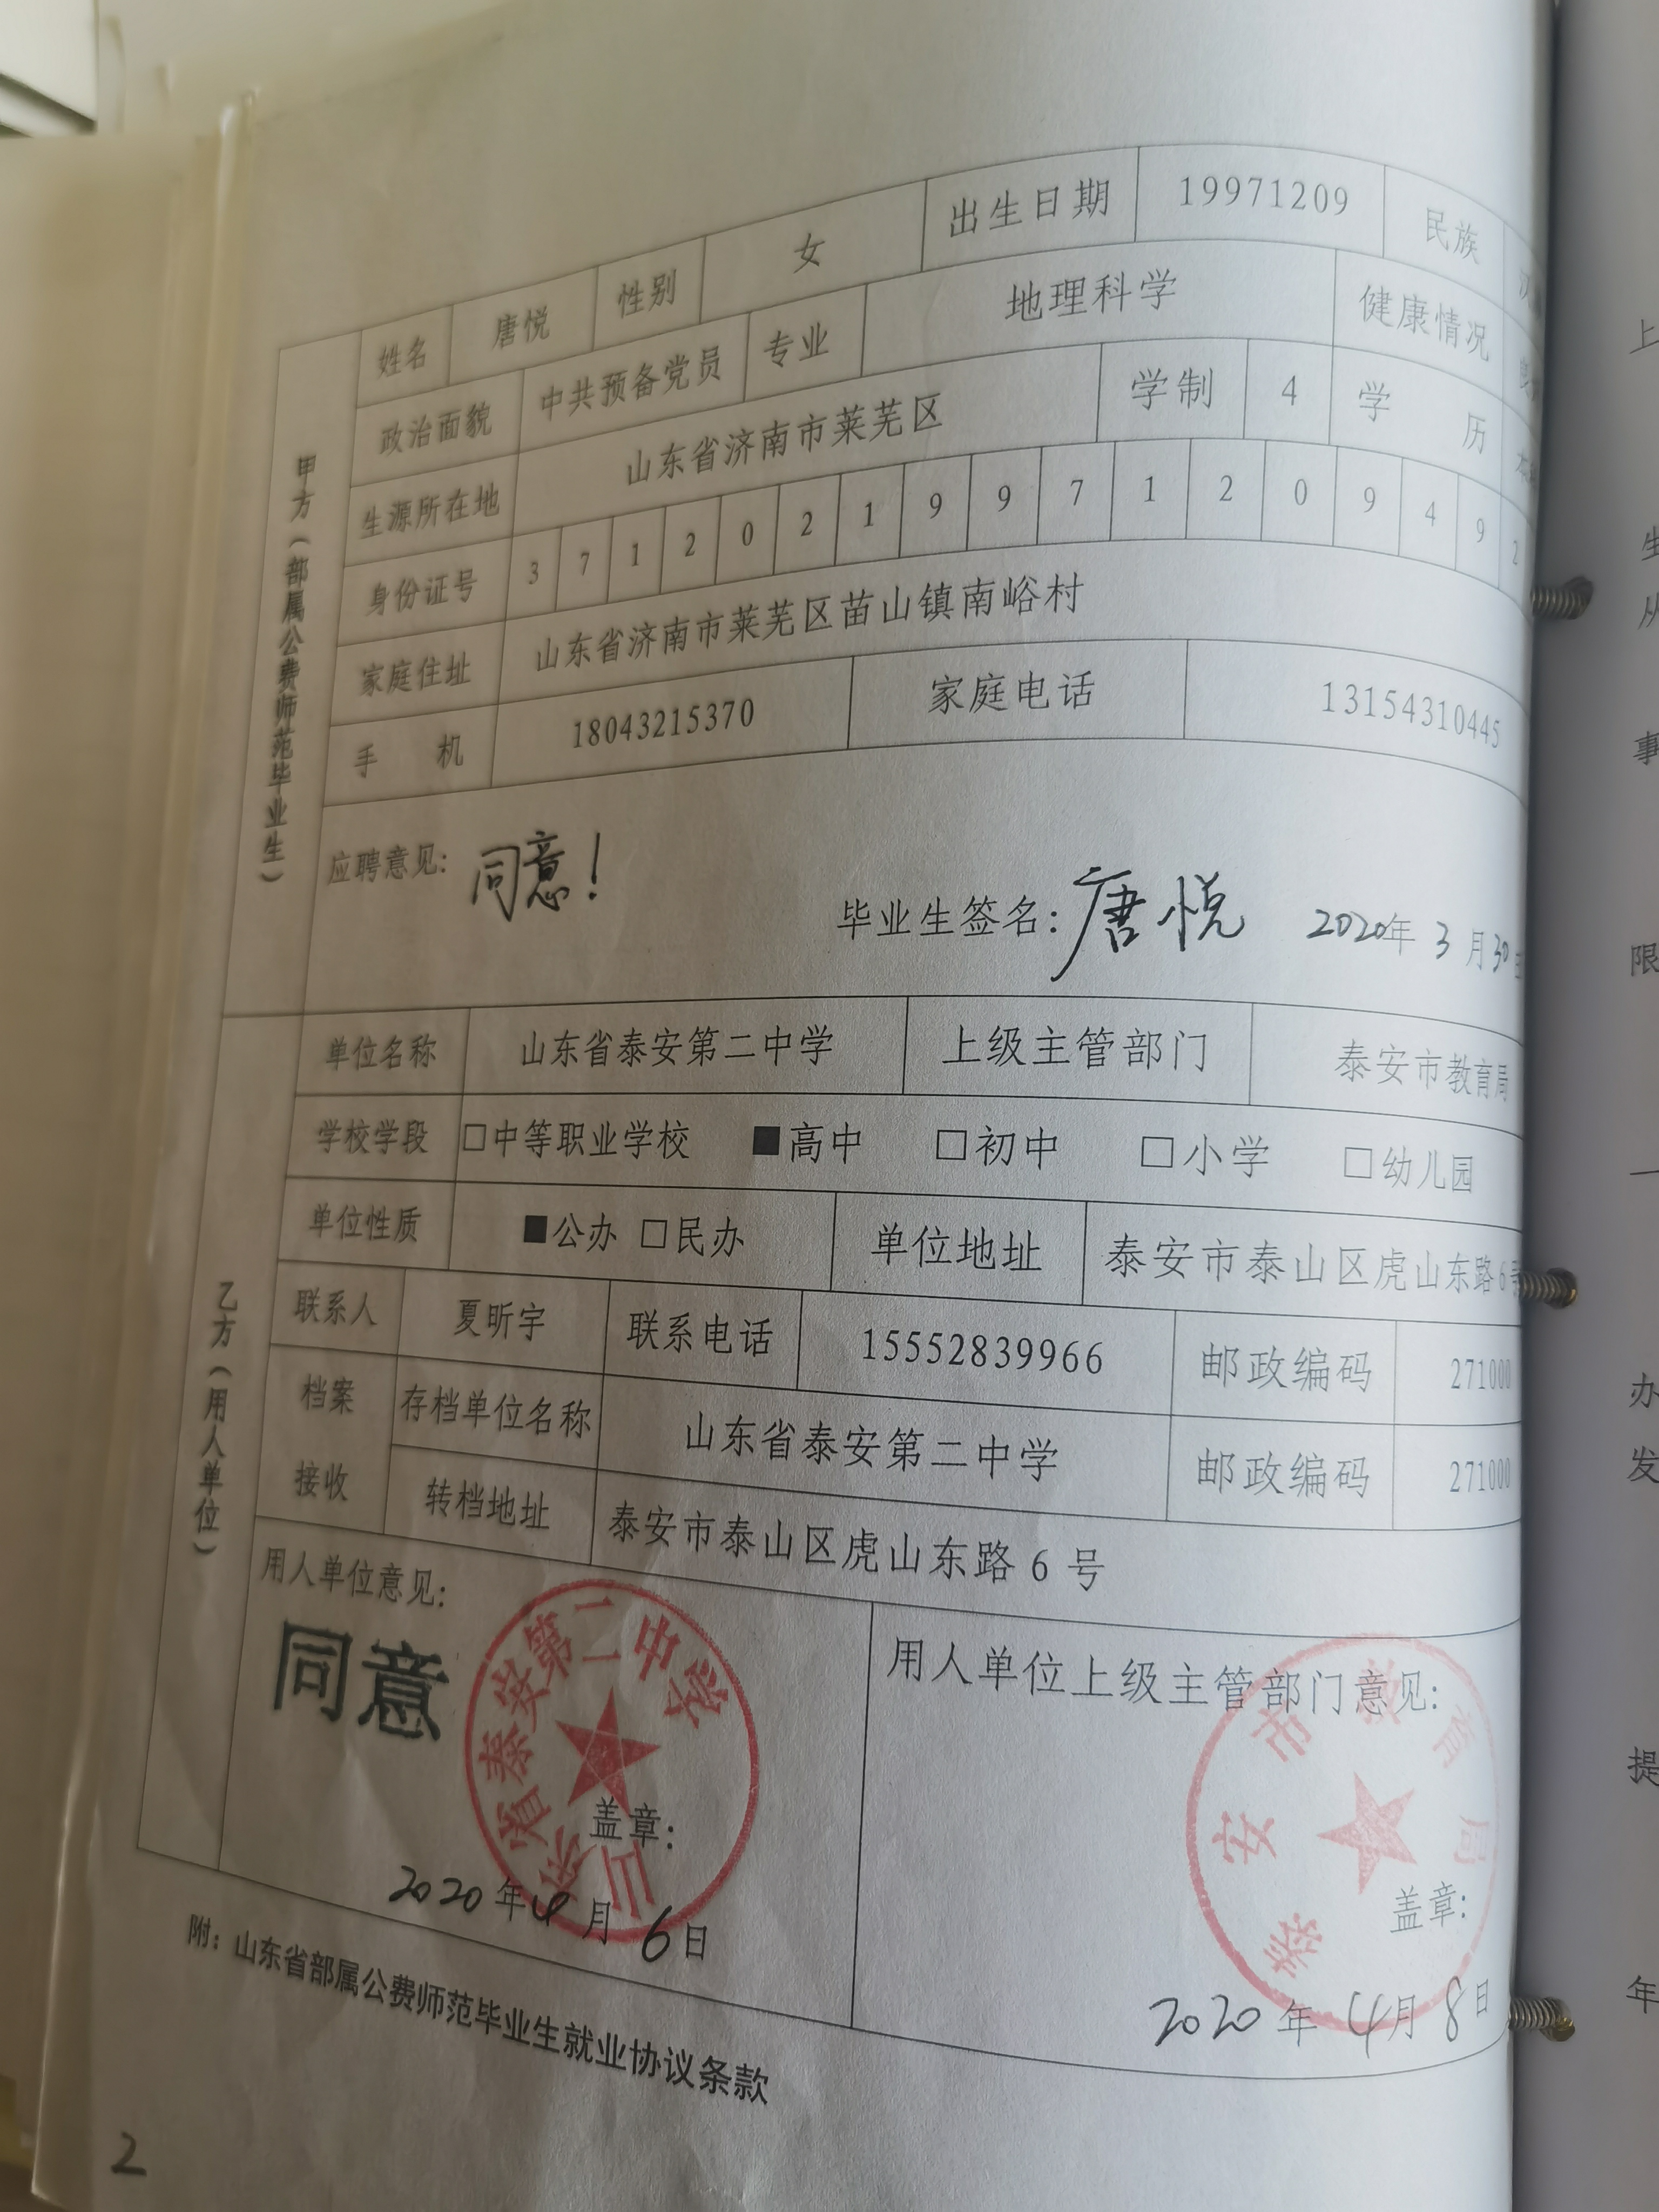 姓名 唐悦 性别 女 出生日期 19971209 民族
政治面貌 中共预备党员 专业 地理科学 健康情况
生源所在地 山东省济南市莱芜区 学制 4 学 历
身份证号 3 7 1 2 0 2 1 9 9 7 1 2 0 9 4 9 2
家庭住址 山东省济南市莱芜区苗山镇南峪村
手 机 18043215370 家庭电话 13154310445
甲方（部属公费师范毕业生）
应聘意见: 同意！
毕业生签名: 唐悦 2020年3月30
单位名称 山东省泰安第二中学 上级主管部门 泰安市教育局
学校学段 □中等职业学校 ■高中 □初中 □小学 □幼儿园
单位性质 ■公办 □民办 单位地址 泰安市泰山区虎山东路6号
联系人 夏昕宇 联系电话 15552839966 邮政编码 271000
档案接收 存档单位名称 山东省泰安第二中学 邮政编码 271000
转档地址 泰安市泰山区虎山东路 6 号
乙方（用人单位）
用人单位意见:
同意
山东省泰安第二中学
盖章:
2020年4月6日
用人单位上级主管部门意见:
泰安市教育局
盖章:
2020年4月8日
附: 山东省部属公费师范毕业生就业协议条款
2
上
生
从
事
限
一
办
发
提
年